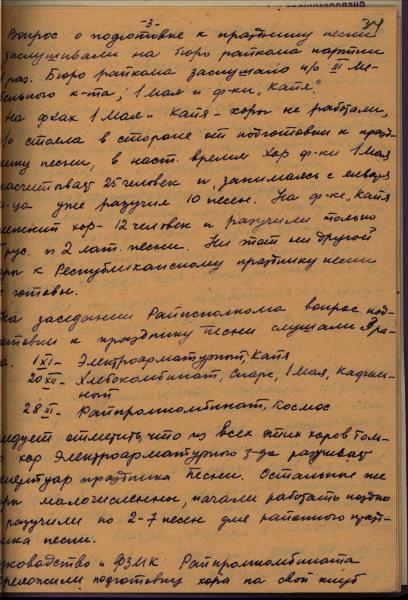 -3-
34
Вопрос о подготовке к празднику песни
заслушивали на бюро райкома партии
1 раз. Бюро райкома заслушало п/о III Ме-
бельного к-та, 1 Мая и ф-ки „Катя".
На ф-ках 1 Мая и Катя - хоры не работали,
п/о стояла в стороне от подготовки к празд-
нику песни, в наст. время хор ф-ки 1 Мая
насчитывает 25 человек и, занимаясь с января
м-ца уже разучил 10 песен. На ф-ке „Катя
женский хор - 12 человек и разучили только
рус. и 2 лат. песни. Ни тот ни другой
хоры к Республиканскому празднику песни
не готовы.
На заседании Райисполкома вопрос под-
готовки к празднику песни слушали 3 ра-
за. 1 XI - Электроарматурный, Катя
20 XII - Хлебокомбинат, Спарс, 1 Мая,
ный
28 III - Райпромкомбинат, Космос
Следует отметить, что из всех этих хоров толь-
ко хор Электроарматурного з-да разучивает
репертуар праздника песни. Остальные же
хоры малочисленны, начали работать поздно
разучили по 2-7 песен для районного празд-
ника песни.
Руководство и ФЗМК Райпромкомбината
переложили подготовку хора на свой клуб